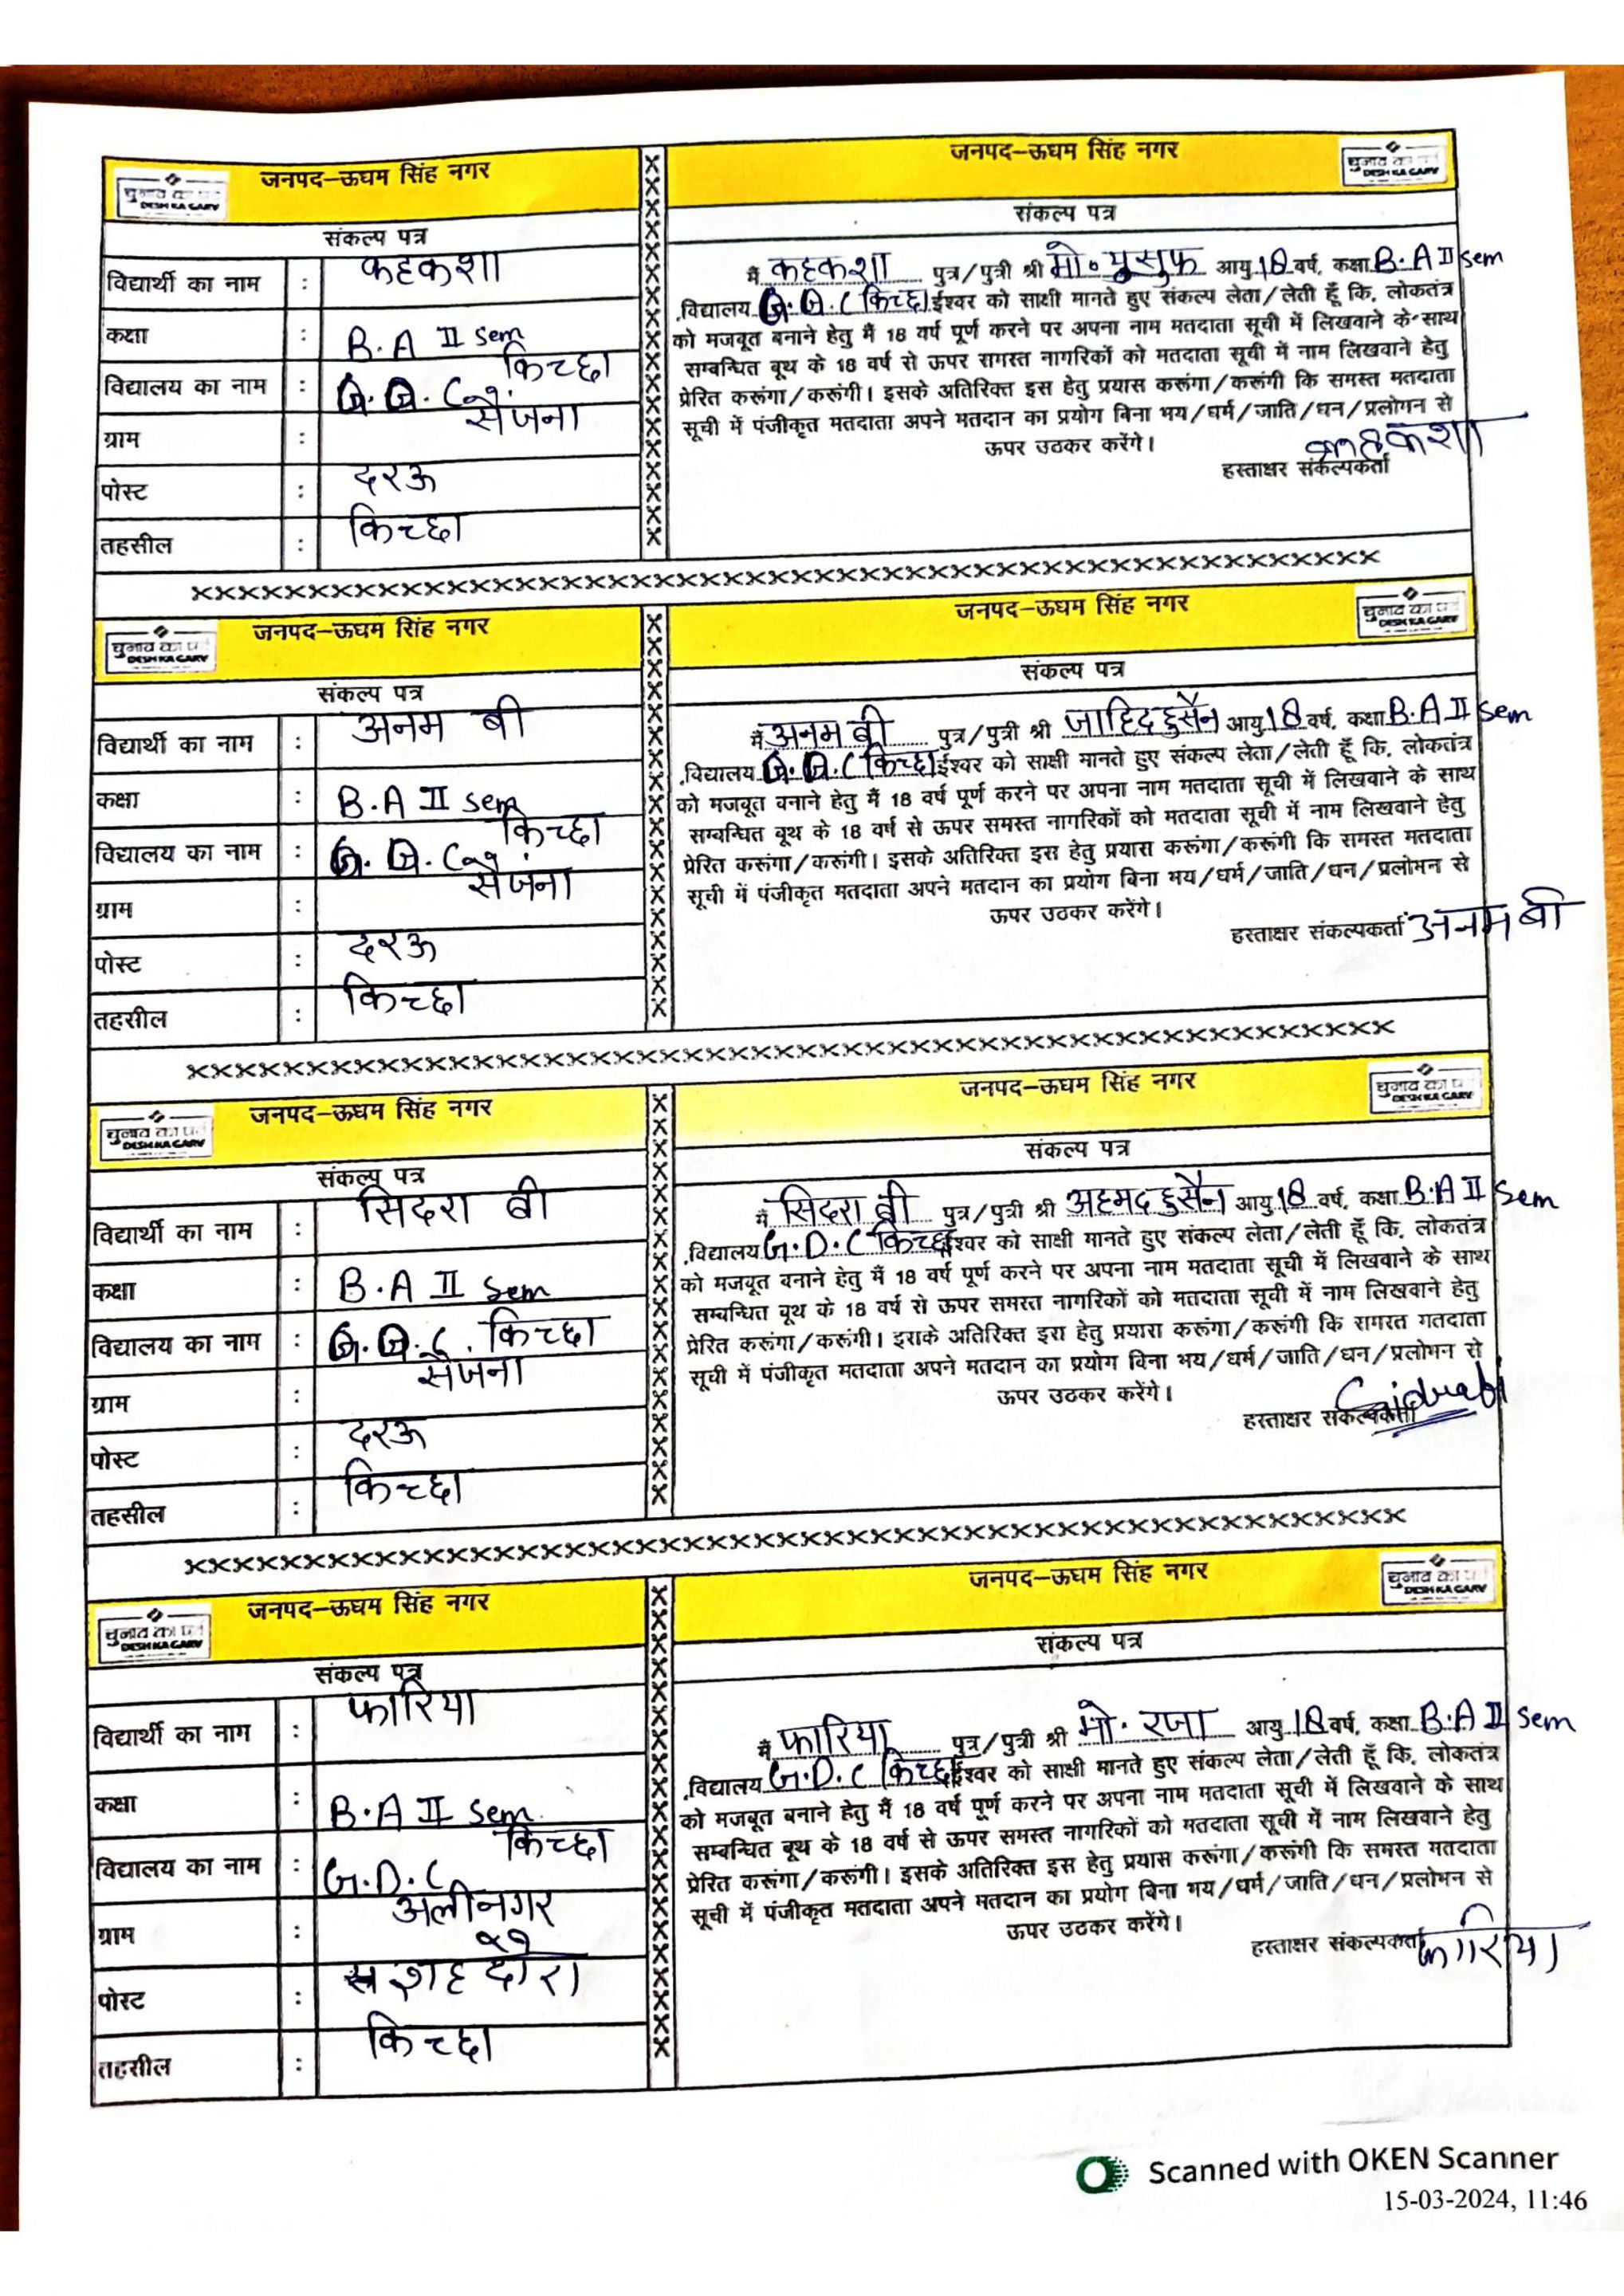 जनपद-ऊधम सिंह नगर
चुनाव का पर्व
DESH KA GARV
संकल्प पत्र
विद्यार्थी का नाम : कहकशा
कक्षा : B.A II sem
विद्यालय का नाम : G.D.C किच्छा
ग्राम : सैंजना
पोस्ट : दरऊ
तहसील : किच्छा
जनपद-ऊधम सिंह नगर
चुनाव का पर्व
DESH KA GARV
संकल्प पत्र
मैं कहकशा पुत्र/पुत्री श्री मो० युसुफ आयु 18 वर्ष, कक्षा B.A II sem
विद्यालय G.D.C किच्छा ईश्वर को साक्षी मानते हुए संकल्प लेता/लेती हूँ कि, लोकतंत्र
को मजबूत बनाने हेतु मैं 18 वर्ष पूर्ण करने पर अपना नाम मतदाता सूची में लिखवाने के साथ
सम्बन्धित बूथ के 18 वर्ष से ऊपर समस्त नागरिकों को मतदाता सूची में नाम लिखवाने हेतु
प्रेरित करूंगा/करूंगी। इसके अतिरिक्त इस हेतु प्रयास करूंगा/करूंगी कि समस्त मतदाता
सूची में पंजीकृत मतदाता अपने मतदान का प्रयोग बिना भय/धर्म/जाति/धन/प्रलोभन से
ऊपर उठकर करेंगे।
कहकशा
हस्ताक्षर संकल्पकर्ता
जनपद-ऊधम सिंह नगर
चुनाव का पर्व
DESH KA GARV
संकल्प पत्र
विद्यार्थी का नाम : अनम बी
कक्षा : B.A II sem
विद्यालय का नाम : G.D.C किच्छा
ग्राम : सैंजना
पोस्ट : दरऊ
तहसील : किच्छा
जनपद-ऊधम सिंह नगर
चुनाव का पर्व
DESH KA GARV
संकल्प पत्र
मैं अनम बी पुत्र/पुत्री श्री जाहिद हुसैन आयु 18 वर्ष, कक्षा B.A II sem
विद्यालय G.D.C किच्छा ईश्वर को साक्षी मानते हुए संकल्प लेता/लेती हूँ कि, लोकतंत्र
को मजबूत बनाने हेतु मैं 18 वर्ष पूर्ण करने पर अपना नाम मतदाता सूची में लिखवाने के साथ
सम्बन्धित बूथ के 18 वर्ष से ऊपर समस्त नागरिकों को मतदाता सूची में नाम लिखवाने हेतु
प्रेरित करूंगा/करूंगी। इसके अतिरिक्त इस हेतु प्रयास करूंगा/करूंगी कि समस्त मतदाता
सूची में पंजीकृत मतदाता अपने मतदान का प्रयोग बिना भय/धर्म/जाति/धन/प्रलोभन से
ऊपर उठकर करेंगे।
हस्ताक्षर संकल्पकर्ता अनम बी
जनपद-ऊधम सिंह नगर
चुनाव का पर्व
DESH KA GARV
संकल्प पत्र
विद्यार्थी का नाम : सिदरा बी
कक्षा : B.A II sem
विद्यालय का नाम : G.D.C. किच्छा
ग्राम : सैजना
पोस्ट : दरऊ
तहसील : किच्छा
जनपद-ऊधम सिंह नगर
चुनाव का पर्व
DESH KA GARV
संकल्प पत्र
मैं सिदरा बी पुत्र/पुत्री श्री अहमद हुसैन आयु 18 वर्ष, कक्षा B.A II sem
विद्यालय G.D.C किच्छा ईश्वर को साक्षी मानते हुए संकल्प लेता/लेती हूँ कि, लोकतंत्र
को मजबूत बनाने हेतु मैं 18 वर्ष पूर्ण करने पर अपना नाम मतदाता सूची में लिखवाने के साथ
सम्बन्धित बूथ के 18 वर्ष से ऊपर समस्त नागरिकों को मतदाता सूची में नाम लिखवाने हेतु
प्रेरित करूंगा/करूंगी। इसके अतिरिक्त इस हेतु प्रयास करूंगा/करूंगी कि समस्त मतदाता
सूची में पंजीकृत मतदाता अपने मतदान का प्रयोग बिना भय/धर्म/जाति/धन/प्रलोभन से
ऊपर उठकर करेंगे।
Sidrabi
हस्ताक्षर संकल्पकर्ता
जनपद-ऊधम सिंह नगर
चुनाव का पर्व
DESH KA GARV
संकल्प पत्र
विद्यार्थी का नाम : फारिया
कक्षा : B.A II sem
विद्यालय का नाम : G.D.C किच्छा
ग्राम : अलीनगर
पोस्ट : शहदौरा
तहसील : किच्छा
जनपद-ऊधम सिंह नगर
चुनाव का पर्व
DESH KA GARV
संकल्प पत्र
मैं फारिया पुत्र/पुत्री श्री मो. रजा आयु 18 वर्ष, कक्षा B.A II sem
विद्यालय G.D.C किच्छा ईश्वर को साक्षी मानते हुए संकल्प लेता/लेती हूँ कि, लोकतंत्र
को मजबूत बनाने हेतु मैं 18 वर्ष पूर्ण करने पर अपना नाम मतदाता सूची में लिखवाने के साथ
सम्बन्धित बूथ के 18 वर्ष से ऊपर समस्त नागरिकों को मतदाता सूची में नाम लिखवाने हेतु
प्रेरित करूंगा/करूंगी। इसके अतिरिक्त इस हेतु प्रयास करूंगा/करूंगी कि समस्त मतदाता
सूची में पंजीकृत मतदाता अपने मतदान का प्रयोग बिना भय/धर्म/जाति/धन/प्रलोभन से
ऊपर उठकर करेंगे।
हस्ताक्षर संकल्पकर्ता फारिया
Scanned with OKEN Scanner
15-03-2024, 11:46